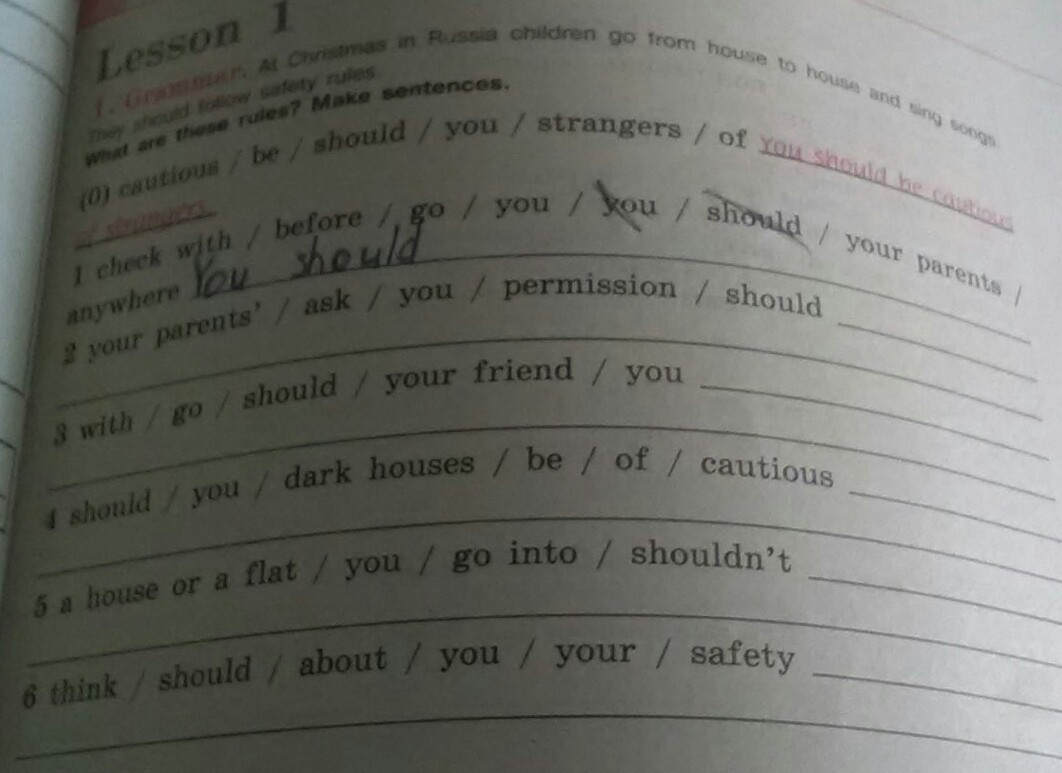 Lesson 1
1. Grammar. At Christmas in Russia children go from house to house and sing songs.
They should follow safety rules.
What are these rules? Make sentences.
(0) cautious / be / should / you / strangers / of You should be cautious
of strangers.
1 check with / before / go / you / you / should / your parents /
anywhere You should
2 your parents' / ask / you / permission / should
3 with / go / should / your friend / you
4 should / you / dark houses / be / of / cautious
5 a house or a flat / you / go into / shouldn't
6 think / should / about / you / your / safety